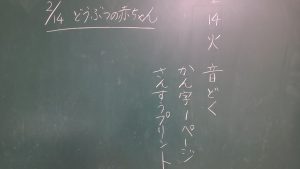 2/14 どうぶつの赤ちゃん
14 火 音どく
かん字1ページ
さんすうプリント